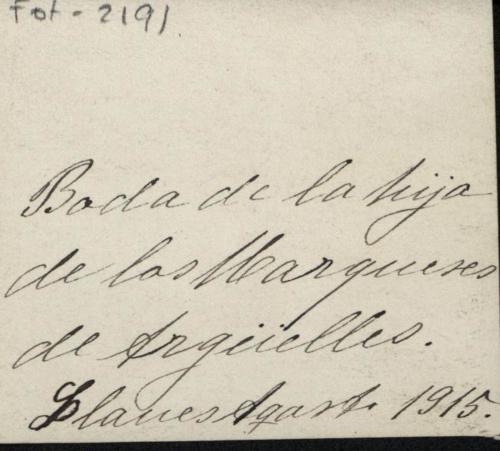 Fot - 2191
Boda de la hija
de los Marqueses
de Argüelles.
Llanes Agosto 1915.